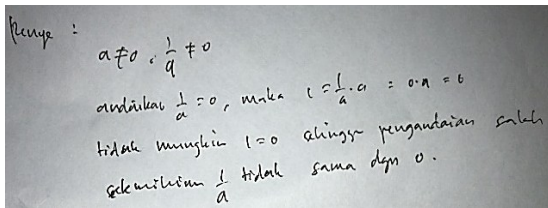 Penye :
a ≠ 0, 1/a ≠ 0
andaikan 1/a = 0, maka 1 = 1/a . a = 0.a = 0
tidak mungkin 1=0 sehingga pengandaian salah
sekmikian 1/a tidak sama dgn 0.